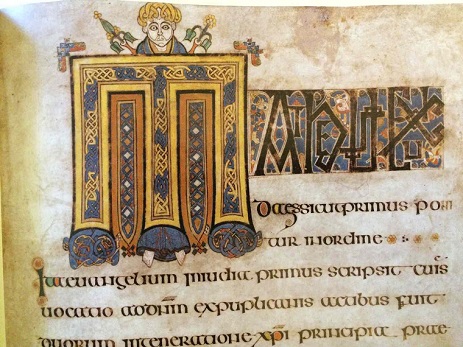 MATHEUS EX IU
daeis sicut primus poni
tur in ordine
Ita euangelium in iudea primus scripsit cuius
uocatio ad dnm ex puplicanis actibus fuit
duorum in generatione xpi principia prae